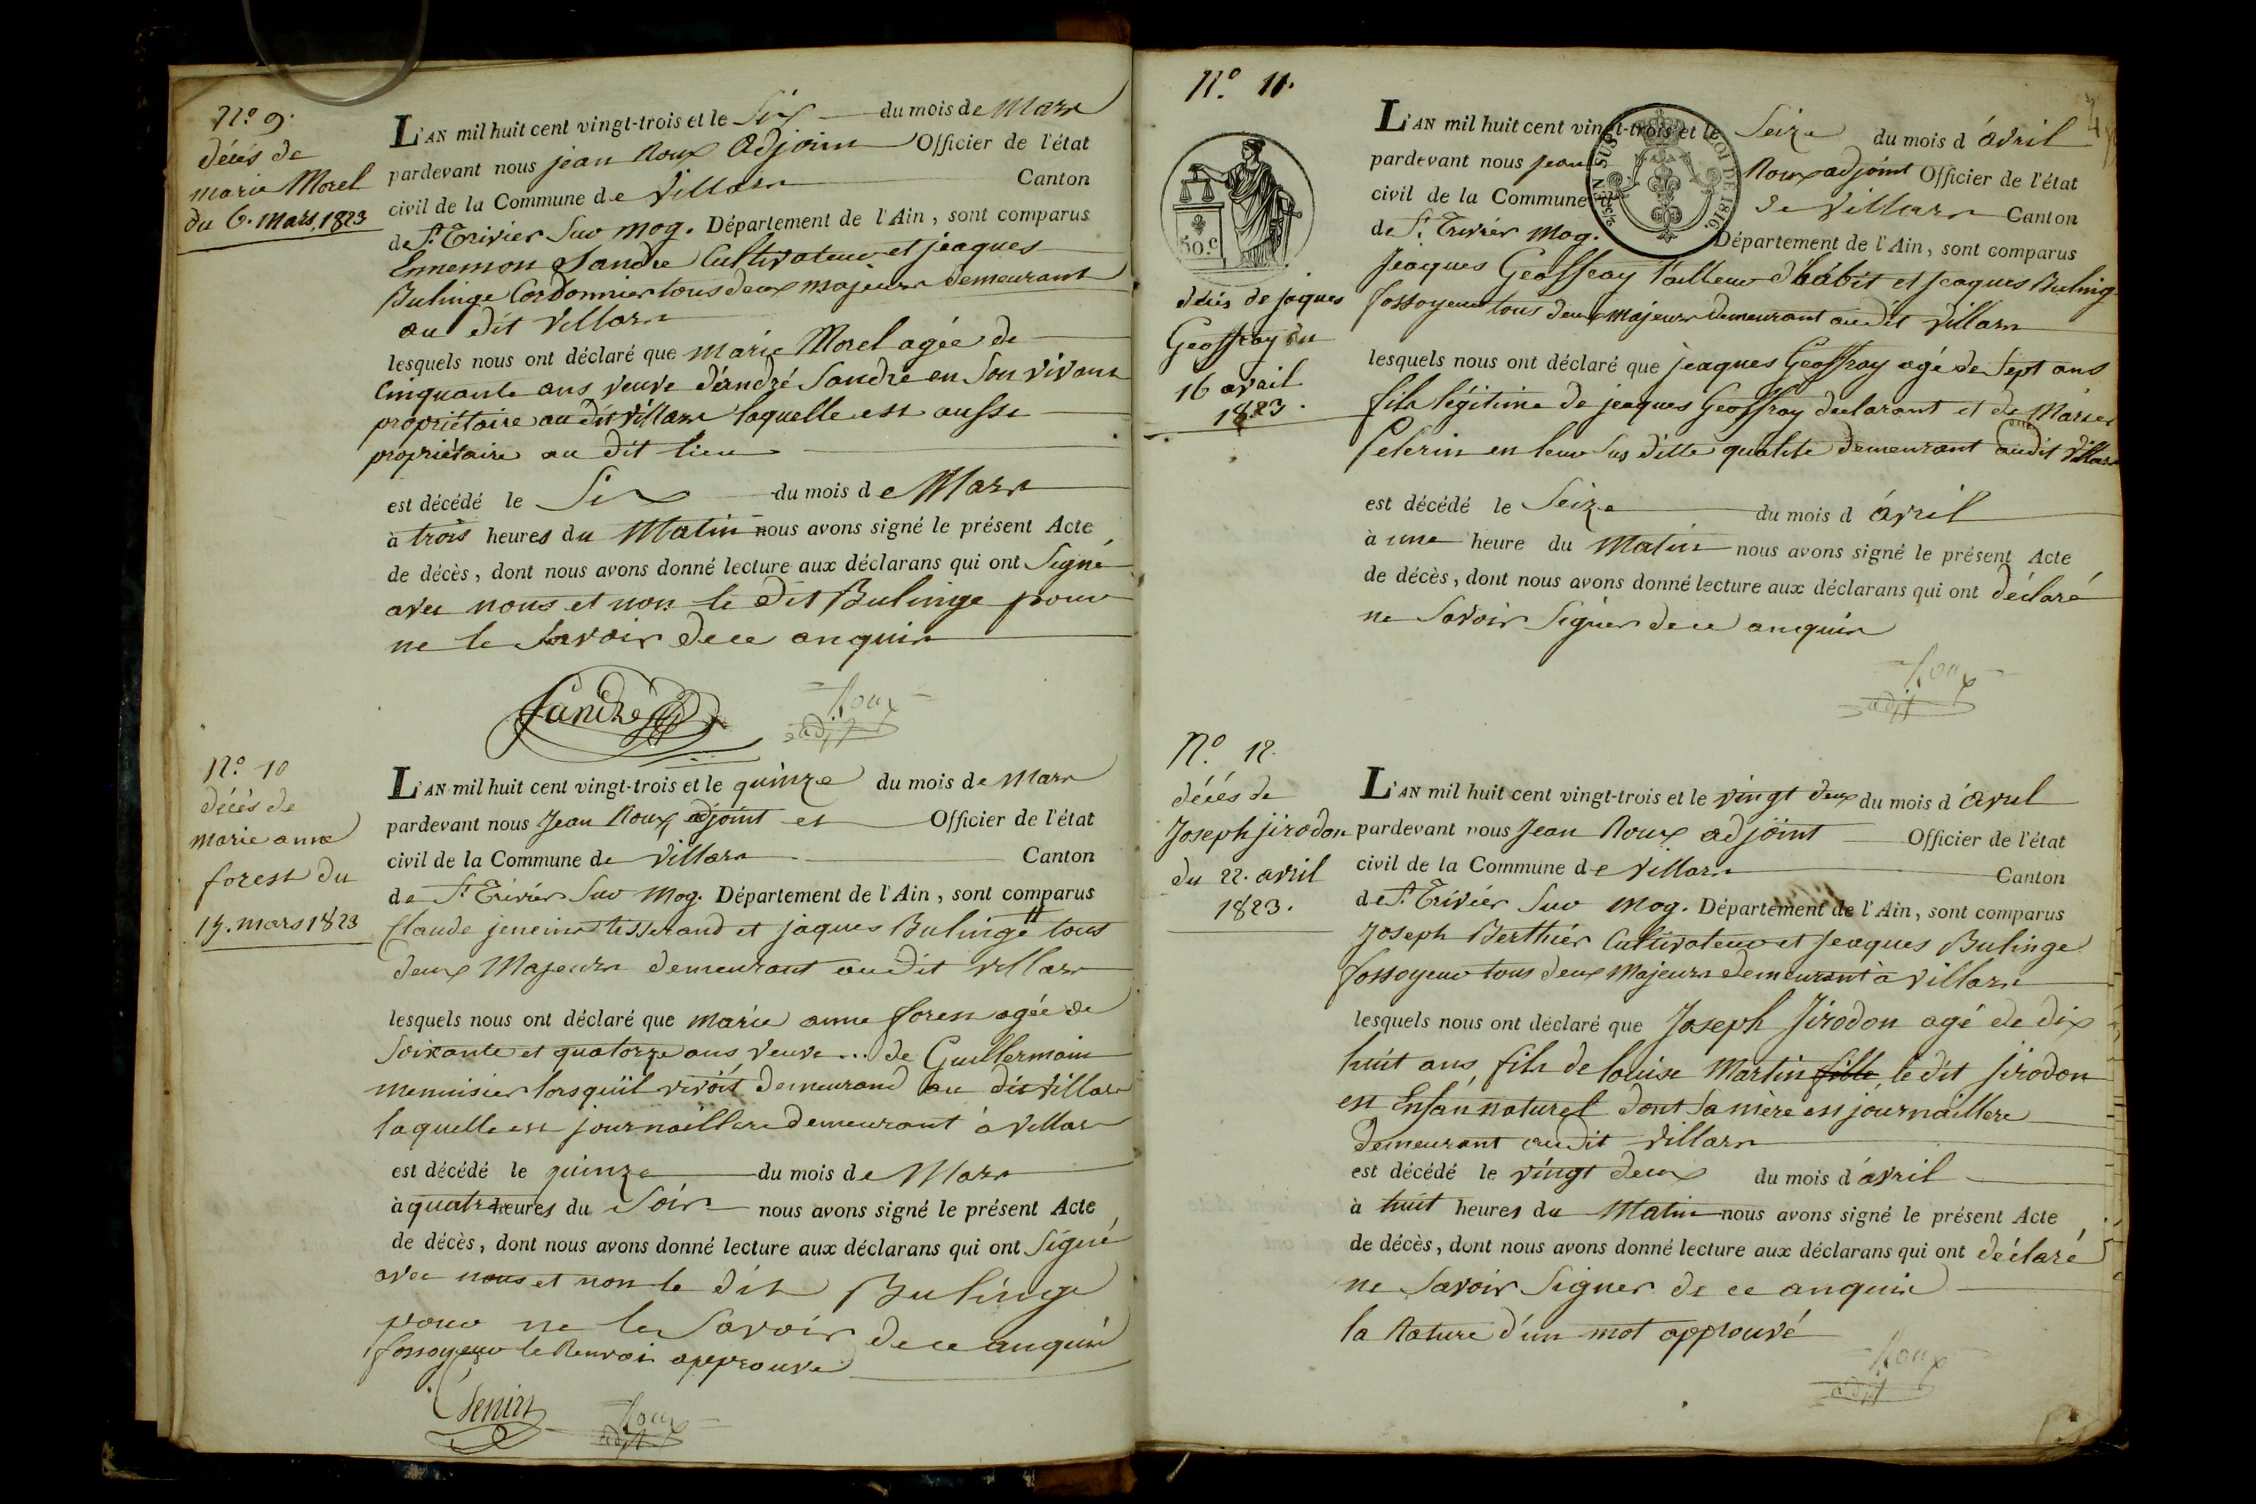 N.o 9.
décés de
marie Morel
du 6. mars 1823
L'AN mil huit cent vingt-trois et le Six du mois de Mars
pardevant nous jean Roux Adjoint Officier de l'état
civil de la Commune de Villars Canton
de St. Trivier Sur Mog. Département de l'Ain, sont comparus
Ennemon Sandre Cultivateur et jeaques
Bulinge Cordonnier tous deux majeurs demeurant
au dit Villars
lesquels nous ont déclaré que marie Morel agée de
Cinquante ans veuve d'éndré Sandre en Son vivant
propriétaire au dit Villars laquelle est aussi
propriétaire au dit lieu
est décédé le Six du mois de Mars
à trois heures du Matin nous avons signé le présent Acte
de décès, dont nous avons donné lecture aux déclarans qui ont Signé
avec nous et non le dit Bulinge pour
ne le Savoir de ce anquis
Sandre Roux
adjt
N.o 10
décés de
marie anne
forest du
15. mars 1823
L'AN mil huit cent vingt-trois et le quinze du mois de Mars
pardevant nous Jean Roux adjoint et Officier de l'état
civil de la Commune de Villars Canton
de St Trivier Sur Mog. Département de l'Ain, sont comparus
Claude tesserand et jaques Bulinge # tous
deux Majeurs demeurant au dit Villars
lesquels nous ont déclaré que marie anne forest agée de
Soixante et quatorze ans veuve... de Guillermain
menuisier lorsquil vivoit demeurand au dit Villars
laquelle est journaillere demeurant à Villars
est décédé le quinze du mois de Mars
à quatre heures du Soir nous avons signé le présent Acte
de décès, dont nous avons donné lecture aux déclarans qui ont Signé
avec nous et non le dit Bulinge
pour ne le Savoir de ce anquis
fossoyeur le Renvoi approuvé
Roux
adjt
N.o 11.
50.c
décés de jaques
Geoffray du
16 avril
1823.
L'AN mil huit cent vingt-trois et le Seize du mois d'avril
pardevant nous Jean Roux adjoint Officier de l'état
civil de la Commune de Villars Canton
de St. Trivier Mog. Département de l'Ain, sont comparus
LOI DE 1816
EN SUS
Jeaques Geoffray tailleur d'habit et Jeaques Buling
fossoyeur tous deux majeurs demeurant au dit Villars
lesquels nous ont déclaré que jeaques Geoffray agé de Sept ans
fils légitime de jeaques Geoffray declarant et de Marie
Pelerin en leur Sus ditte qualité demeurant audit Villars
est décédé le Seize du mois d'avril
à une heure du Matin nous avons signé le présent Acte
de décès, dont nous avons donné lecture aux déclarans qui ont déclaré
ne Savoir Signer de ce anquis
Roux
adjt
N.o 12.
décés de
Joseph jirodon
du 22. avril
1823.
L'AN mil huit cent vingt-trois et le vingt deux du mois d'avril
pardevant nous Jean Roux adjoint Officier de l'état
civil de la Commune de Villars Canton
de St. Trivier Sur Mog. Département de l'Ain, sont comparus
Joseph Berthier Cultivateur et Jeaques Bulinge
fossoyeur tous deux Majeurs demeurant à Villars
lesquels nous ont déclaré que Joseph Jirodon agé de dix
huit ans, fils de louise Martin fille, le dit jirodon
est Enfan naturel dont Sa mère est journaillere
demeurant audit Villars
est décédé le vingt deux du mois d'avril
à huit heures du Matin nous avons signé le présent Acte
de décès, dont nous avons donné lecture aux déclarans qui ont déclaré
ne Savoir Signer de ce anquis
la Rature d'un mot approuvé
Roux
adjt